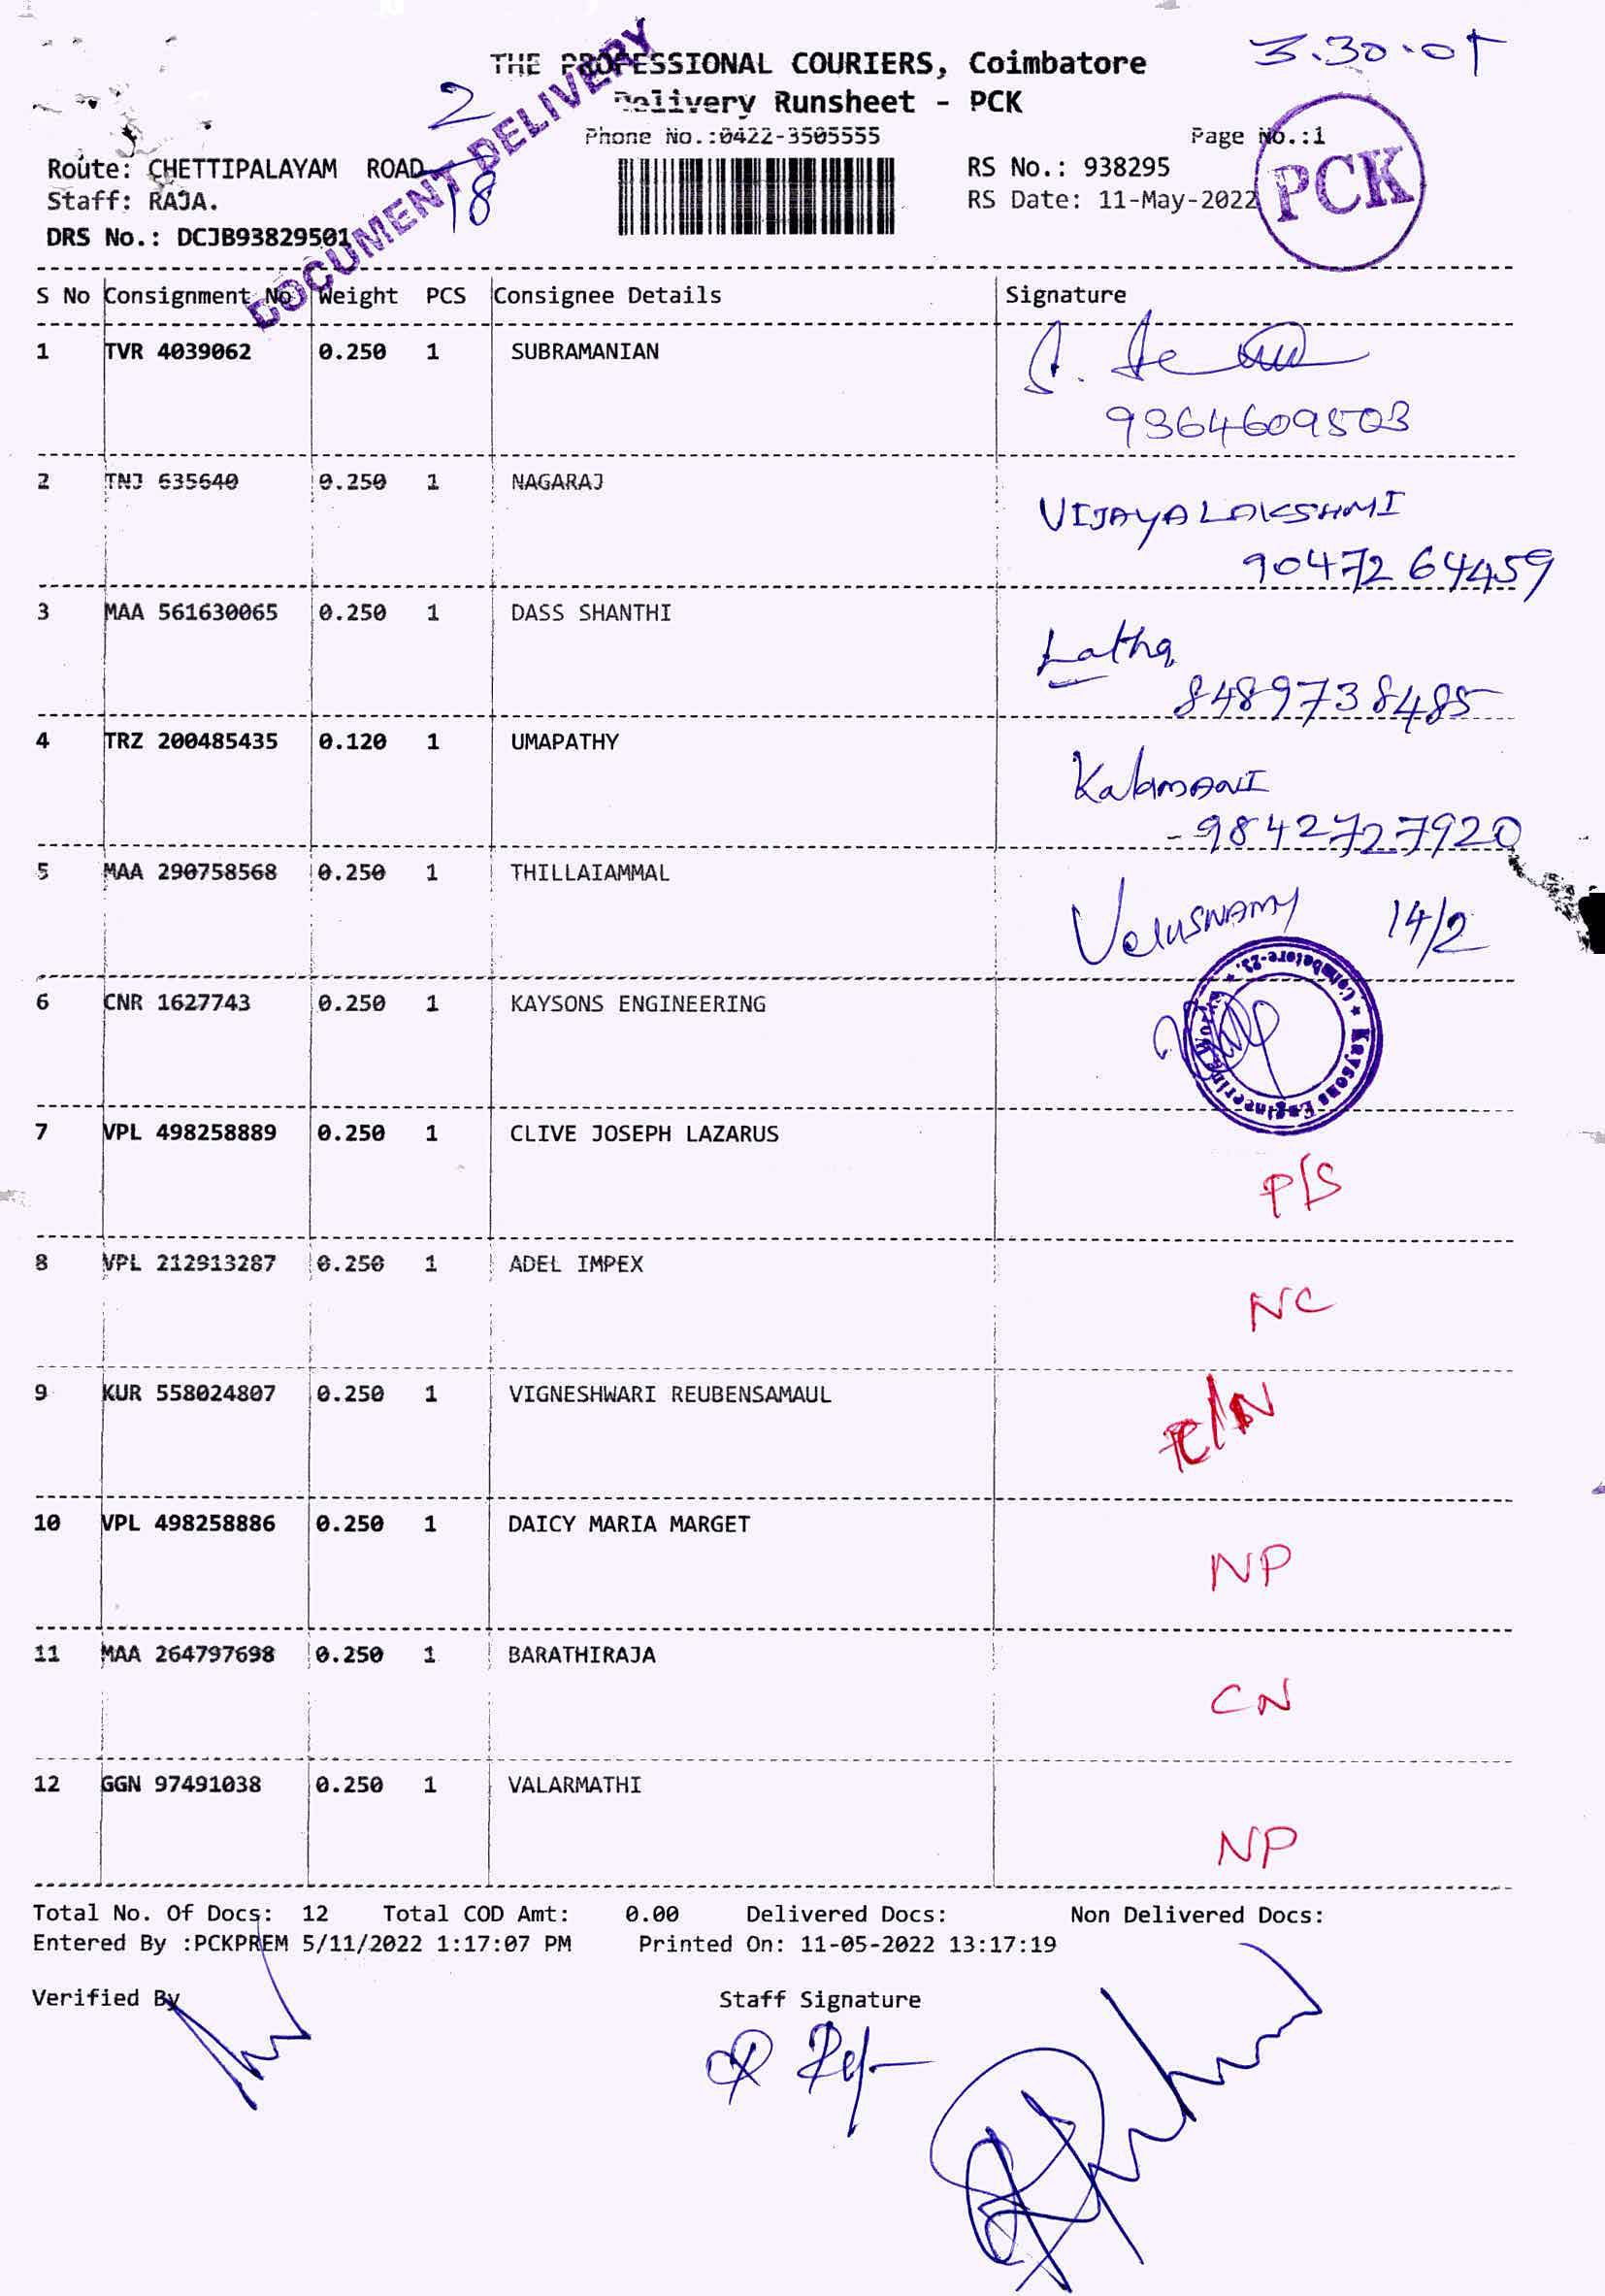 3.30.01
THE PROFESSIONAL COURIERS, Coimbatore
Delivery Runsheet - PCK
2
DOCUMENT DELIVERY
Phone No.:0422-3505555
Page No.:1
PCK
Route: CHETTIPALAYAM ROAD
RS No.: 938295
Staff: RAJA.
18
RS Date: 11-May-2022
DRS No.: DCJB93829501
S No Consignment No Weight PCS Consignee Details Signature
1 TVR 4039062 0.250 1 SUBRAMANIAN
9364609503
2 TNJ 635640 0.250 1 NAGARAJ
VIJAYALAKSHMI
90472 64459
3 MAA 561630065 0.250 1 DASS SHANTHI
Latha
8489738485
4 TRZ 200485435 0.120 1 UMAPATHY
KalaMANI
- 9842727920
5 MAA 290758568 0.250 1 THILLAIAMMAL
VeluSWAMY 14/2
6 CNR 1627743 0.250 1 KAYSONS ENGINEERING
Kaysons Engineering Works * Coimbatore-23. *
7 VPL 498258889 0.250 1 CLIVE JOSEPH LAZARUS
P/S
8 VPL 212913287 0.250 1 ADEL IMPEX
NC
9 KUR 558024807 0.250 1 VIGNESHWARI REUBENSAMAUL
10 VPL 498258886 0.250 1 DAICY MARIA MARGET
NP
11 MAA 264797698 0.250 1 BARATHIRAJA
CN
12 GGN 97491038 0.250 1 VALARMATHI
NP
Total No. Of Docs: 12 Total COD Amt: 0.00 Delivered Docs: Non Delivered Docs:
Entered By :PCKPREM 5/11/2022 1:17:07 PM Printed On: 11-05-2022 13:17:19
Verified By Staff Signature